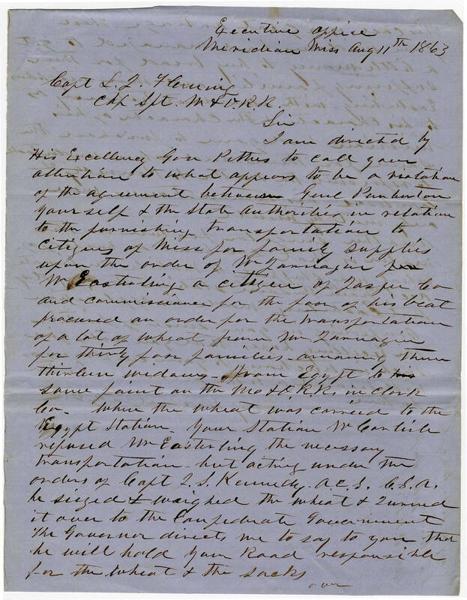 Executive office
Meridian Miss Aug 11th 1863
Capt L. J. Fleming
Chf Spt. M & O. R.R.
Sir
I am directed by
His Excellency Gov Pettus to call your
attention to what appears to be a violation
of the agreement between Genl Pemberton
yourself & the State Authorities in relation
to the furnishing transportation to
citizens of Miss for family supplies
upon the order of Mr Tannajin
Mr Easterling a citizen of Jasper Co
and commissioner for the poor of his beat
procured an order for the transportation
of a lot of wheat from Mr Tannajin
for thirty poor families among them
thirteen widows from Egypt to
some point on the Mo & O. R.R. in Clark
Co. When the wheat was carried to the
Egypt Station your Station Mr
refused Mr Easterling the necessary
transportation but acting under the
orders of Capt T. S. Kennedy A.C.S. C.S.A.
he seized & weighed the wheat & turned
it over to the Confederate Government
The Governor directs me to say to you that
he will hold your Road responsible
for the wheat & the sacks
over